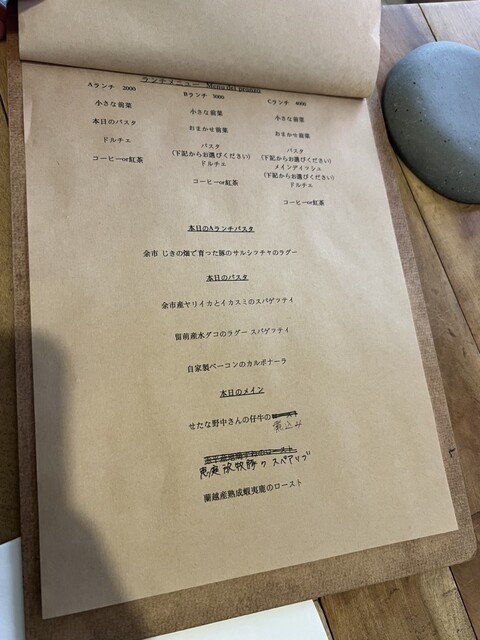 ランチメニュー Menu del pranzo
Aランチ 2000
小さな前菜
本日のパスタ
ドルチェ
コーヒーor紅茶
Bランチ 3000
小さな前菜
おまかせ前菜
パスタ
(下記からお選びください)
ドルチェ
コーヒーor紅茶
Cランチ 4000
小さな前菜
おまかせ前菜
パスタ
(下記からお選びください)
メインディッシュ
(下記からお選びください)
ドルチェ
コーヒーor紅茶
本日のAランチパスタ
余市 じきの畑で育った豚のサルシッチャのラグー
本日のパスタ
余市産ヤリイカとイカスミのスパゲッティ
留萌産水ダコのラグー スパゲッティ
自家製ベーコンのカルボナーラ
本日のメイン
せたな野中さんの仔牛のロースト
煮込み
恵庭放牧豚のスペアリブ
蘭越産熟成蝦夷鹿のロースト